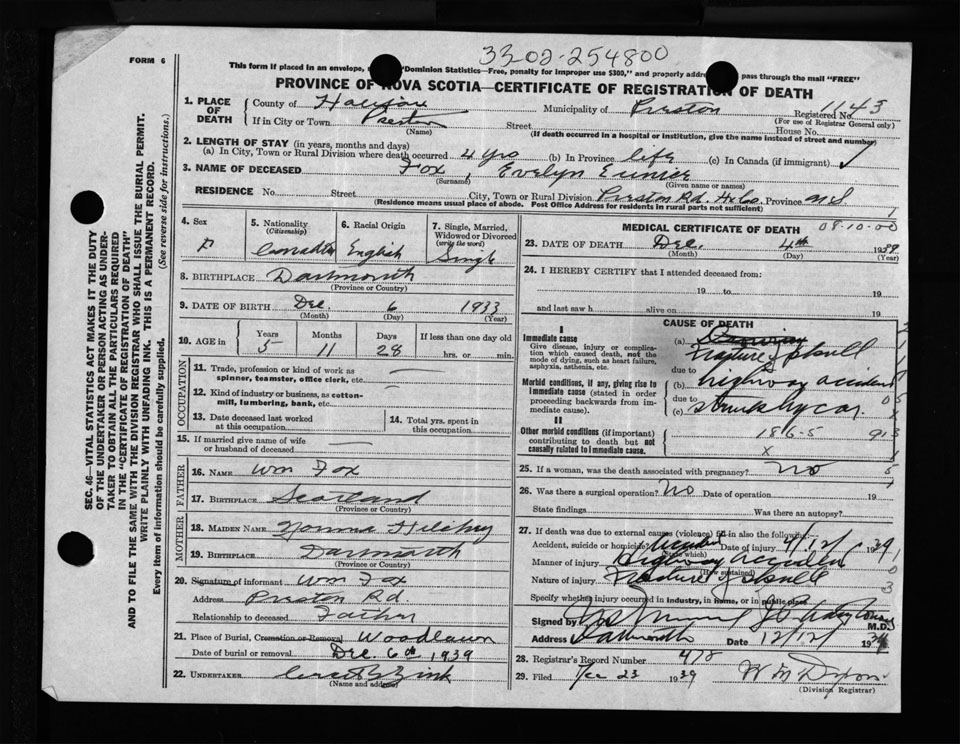 3302-254800
FORM 6
This form if placed in an envelope, "Dominion Statistics—Free, penalty for improper use $300," and properly addre pass through the mail "FREE"
PROVINCE OF NOVA SCOTIA—CERTIFICATE OF REGISTRATION OF DEATH
1. PLACE OF DEATH County of Halifax Municipality of Preston Registered No. 1143
(For use of Registrar General only)
If in City or Town Preston Street House No.
(Name) (If death occurred in a hospital or institution, give the name instead of street and number)
2. LENGTH OF STAY (in years, months and days)
(a) In City, Town or Rural Division where death occurred 4 yrs (b) In Province life (c) In Canada (if immigrant)
3. NAME OF DECEASED Fox, Evelyn Eunice
(Surname) (Given name or names)
RESIDENCE No. Street City, Town or Rural Division Preston Rd. Hx Co. Province N.S.
(Residence means usual place of abode. Post Office Address for residents in rural parts not sufficient)
4. Sex 5. Nationality (Citizenship) 6. Racial Origin 7. Single, Married, Widowed or Divorced (write the word)
F Canadian English Single
8. BIRTHPLACE Dartmouth
(Province or Country)
9. DATE OF BIRTH Dec. 6 1933
(Month) (Day) (Year)
10. AGE in Years Months Days If less than one day old
5 11 28 hrs. or min.
OCCUPATION
11. Trade, profession or kind of work as spinner, teamster, office clerk, etc. —
12. Kind of industry or business, as cotton-mill, lumbering, bank, etc. —
13. Date deceased last worked at this occupation 14. Total yrs. spent in this occupation
15. If married give name of wife or husband of deceased —
FATHER
16. NAME Wm Fox
17. BIRTHPLACE Scotland
(Province or Country)
MOTHER
18. MAIDEN NAME
19. BIRTHPLACE Dartmouth
(Province or Country)
20. Signature of informant Wm Fox
Address Preston Rd.
Relationship to deceased Father
21. Place of Burial, Cremation or Removal Woodlawn
Date of burial or removal Dec. 6th, 1939
22. UNDERTAKER Zink
(Name and address)
MEDICAL CERTIFICATE OF DEATH 08-10-00
23. DATE OF DEATH Dec. 4th 1939
(Month) (Day) (Year)
24. I HEREBY CERTIFY that I attended deceased from:
19 to 19
and last saw h alive on 19
CAUSE OF DEATH
I
Immediate cause
Give disease, injury or complication which caused death, not the mode of dying, such as heart failure, asphyxia, asthenia, etc.
(a) Fracture of Skull
due to
Morbid conditions, if any, giving rise to immediate cause (stated in order proceeding backwards from immediate cause).
(b) highway accident
due to
(c) struck by car
II
Other morbid conditions (if important) contributing to death but not causally related to immediate cause.
186-5
x
25. If a woman, was the death associated with pregnancy? No
26. Was there a surgical operation? No Date of operation 19
State findings Was there an autopsy?
27. If death was due to external causes (violence) fill in also the following:
Accident, suicide or homicide? Accident Date of injury 4/12/ 1939
(State which)
Manner of injury Highway Accident
(How sustained)
Nature of injury Fracture of Skull
Specify whether injury occurred in industry, in home, or in public place
Signed by M.D.
Address Dartmouth Date 12/12/ 1939
28. Registrar's Record Number 478
29. Filed Dec 23 1939 W M Dixon
(Division Registrar)
SEC. 46—VITAL STATISTICS ACT MAKES IT THE DUTY
OF THE UNDERTAKER OR PERSON ACTING AS UNDER-
TAKER TO OBTAIN ALL THE PARTICULARS REQUIRED
IN THE "CERTIFICATE OF REGISTRATION OF DEATH"
AND TO FILE THE SAME WITH THE DIVISION REGISTRAR WHO SHALL ISSUE THE BURIAL PERMIT.
WRITE PLAINLY WITH UNFADING INK. THIS IS A PERMANENT RECORD.
Every item of information should be carefully supplied. (See reverse side for instructions.)